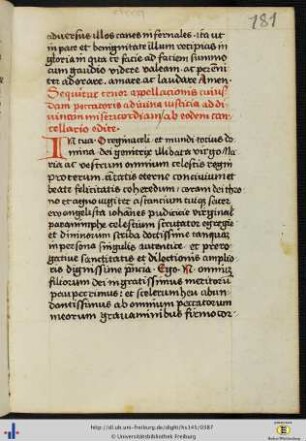 181
aduersus illos canes infernales. ita ut
in pace et benignitate illum recipias in
gloriam qua te facie ad faciem summo
cum gaudio videre valeam. ac perenni
ter adorare. amare ac laudare Amen.
Sequitur tenor appellacionis cuius
dam peccatoris a diuina iusticia ad di
uinam misericordiam ab eodem can
cellario edite.
In tua o regina celi et mundi totius do
mina dei genitrix illibata virgo Ma
ria ac vestrum omnium celestis regni
procerum. ciuitatis eterne conciuium et
beate felicitatis coheredum: coram dei thro
no et agni iugiter astancium tuique
ewangelista iohannes pudicicie virginal
paranimphe celestium scrutator egregie
et diuinorum scriba doctissime tanquam
in persona singulis autentice. et prero
gatiue sanctitatis et dilectionis amplio
ris dignissime Ego. N. omnium
filiorum dei ingratissimus meritorum
pauperrimus: et scelerum heu abun
dantissimus ab omnium peccatorum
meorum grauaminibus firmo cor
http://dl.ub.uni-freiburg.de/diglit/hs145/0387
© Universitätsbibliothek Freiburg